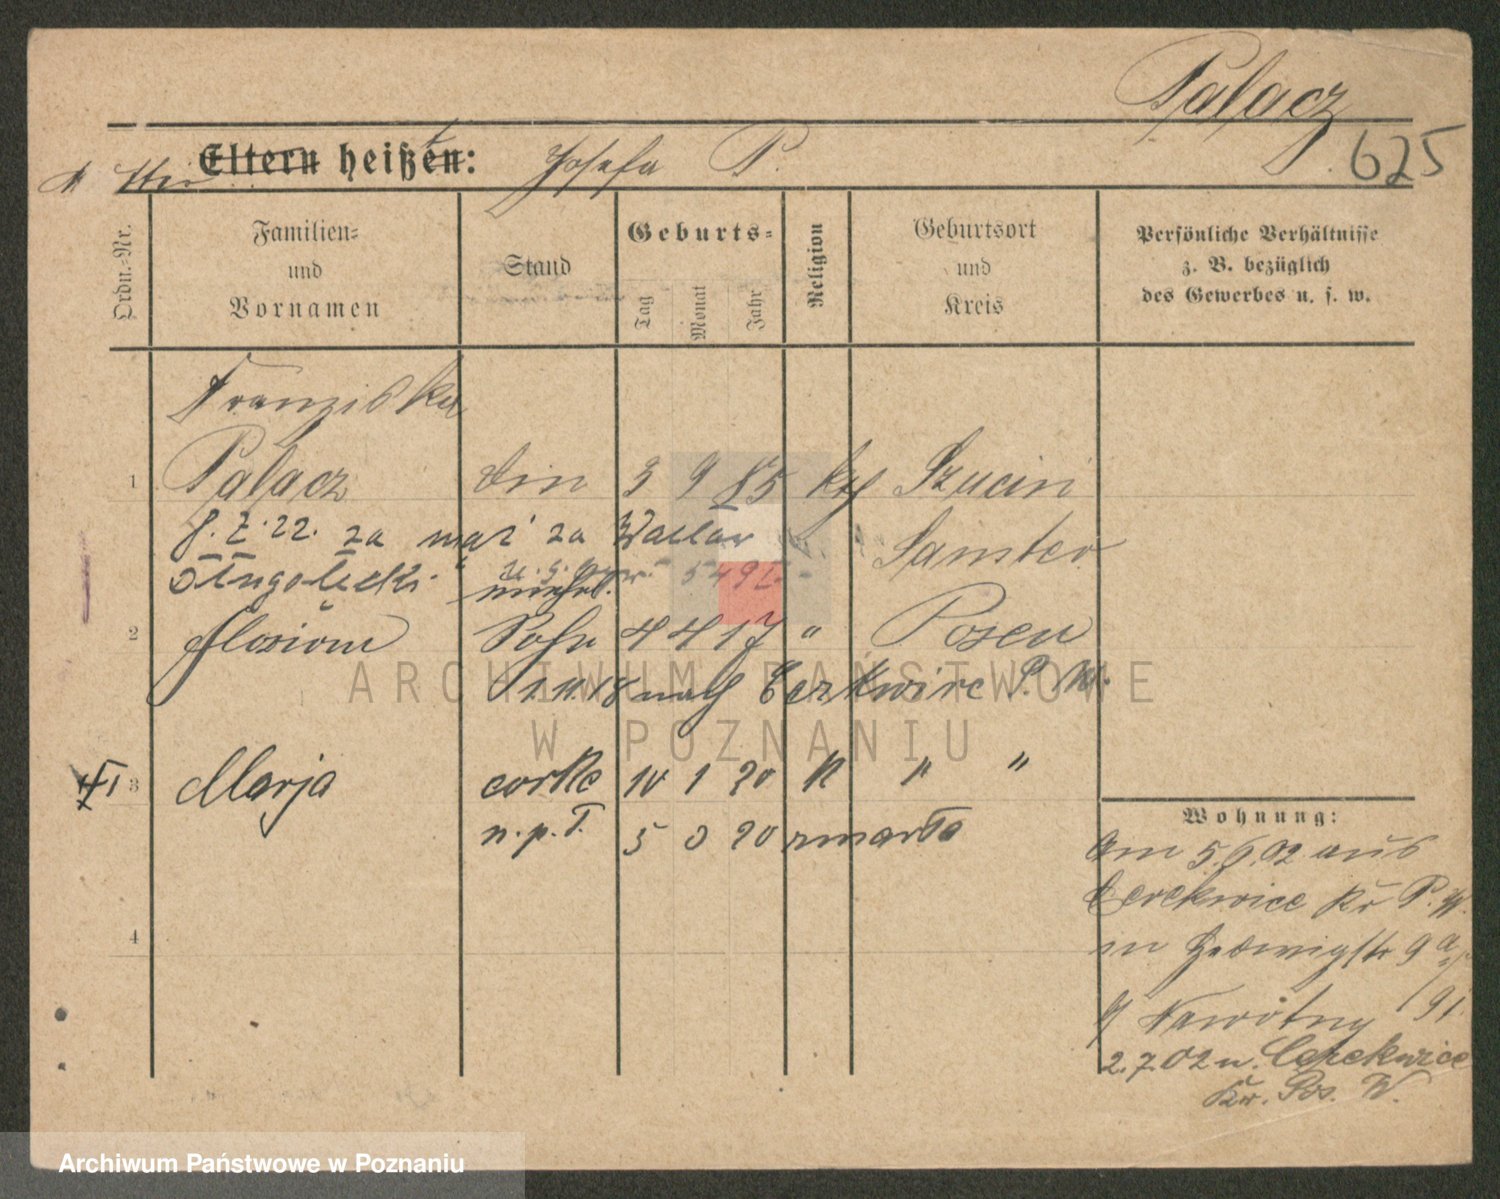 Palacz
625
Mutter
Eltern heißen: Josefa P.
Ordn.-Nr.
Familien- und Vornamen
Stand
Geburts-
Tag
Monat
Jahr
Religion
Geburtsort und Kreis
Persönliche Verhältnisse z. B. bezüglich des Gewerbes u. s. w.
Franziska
1 Palacz din 3 9 85 kth Szucin
8. 2. 22. za mąż za Wacław
Samter
Długołęcki
2 Florian Sohn 4 4 17 " Posen
1.11.18 nach Cerkwice P. W.
3 Marja córka 10 1 20 K " "
n. p. T. 5 3 20 zmarła
4
Wohnung:
Am 5.6.02 aus
Cerekwice Kr P. W.
in Hedwigstr 9a
b/ Nawrotny 91
2.7.02 n. Cerekwice
Kr. Pos. W.
ARCHIWUM PAŃSTWOWE
W POZNANIU
Archiwum Państwowe w Poznaniu